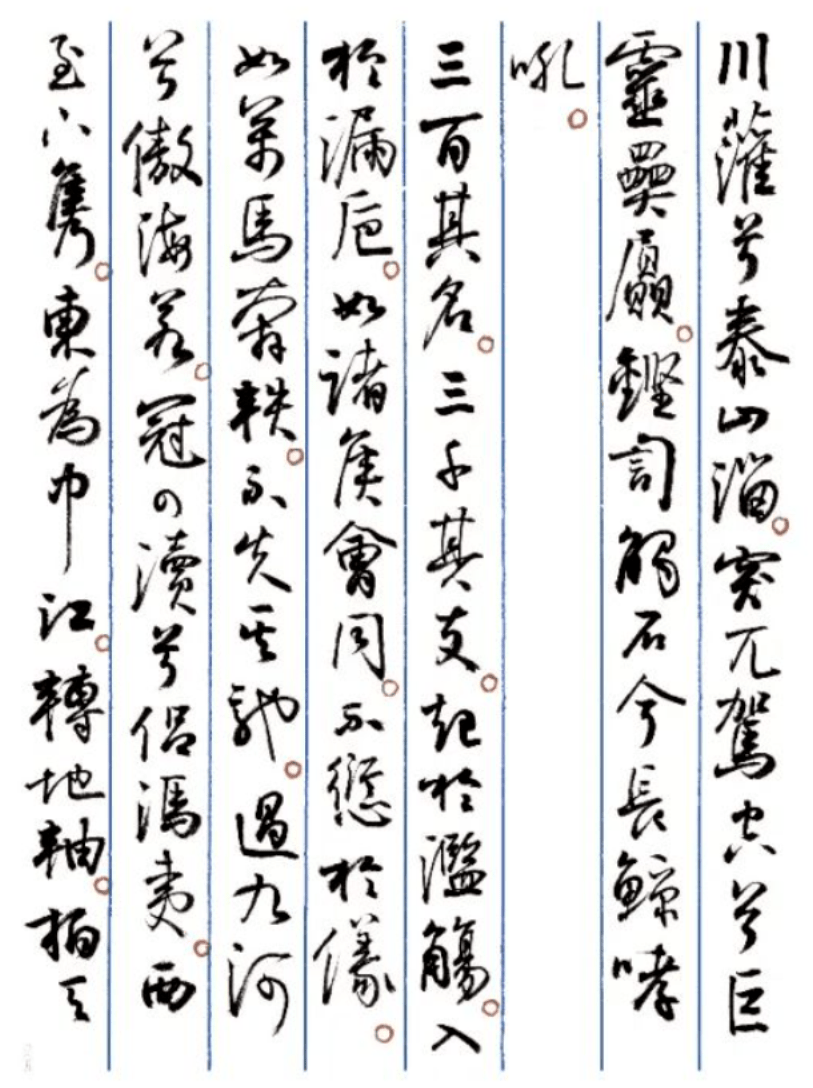 川灌兮泰山溜。突兀駕空兮巨
靈奰屭。鏗訇觸石兮長鯨哮
吼。
三百其名。三千其支。起於濫觴。入
於漏卮。如諸侯會同。不愆於儀。
如萬馬奔軼。不失其馳。過九河
兮傲海若。冠四瀆兮侶馮夷。西
至小雋。東為中江。轉地軸。拍天